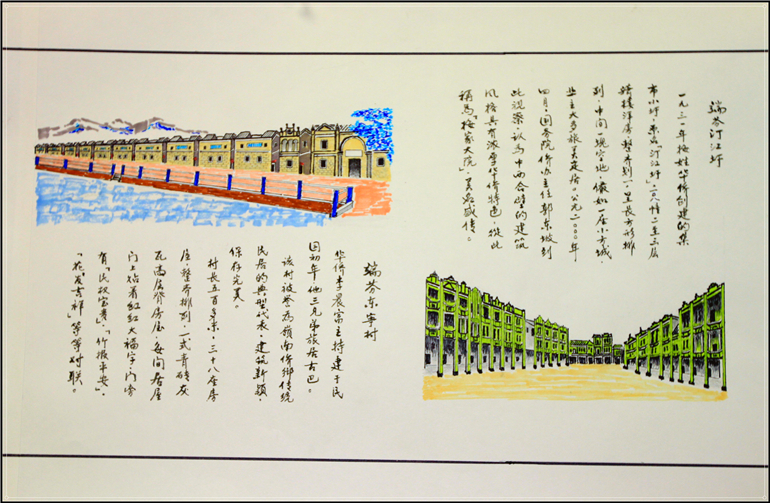 端芬汀江圩
一九三一年梅姓华侨创建的集
市小圩,名"汀江圩"二〇八幢二至三层
骑楼洋房整齐列一里长方形排
列,中间一块空地,像如一座小方城,
业主大多旅美定居。公元二〇〇〇年
四月,国务院侨办主任郭东坡到
此视察,认为中西合璧的建筑
风格具有浓厚华侨特色,从此
稱为"梅家大院",美名盛传。
端芬东宁村
华侨李晨富主持建于民
国初年他三兄弟旅居古巴。
该村被誉为嶺南侨乡传统
民居的典型代表,建筑新颖,
保存完美。
村长五百多米,三十八座房
屋整齐排列,一式青砖灰
瓦高层脊房屋,每间居屋
门上贴着红红大福字,门旁
有"民富贵","竹报平安",
"花发吉祥"等等对联。